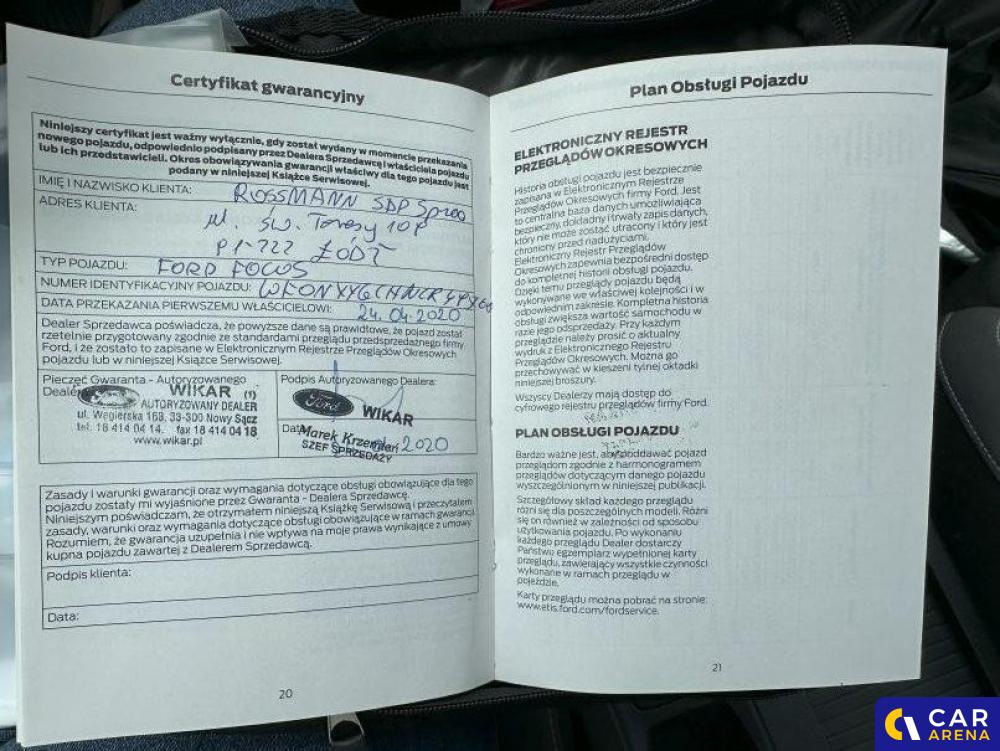 Certyfikat gwarancyjny
Niniejszy certyfikat jest ważny wyłącznie, gdy został wydany w momencie przekazania
nowego pojazdu, odpowiednio podpisany przez Dealera Sprzedawcę i właściciela pojazdu
lub ich przedstawicieli. Okres obowiązywania gwarancji właściwy dla tego pojazdu jest
podany w niniejszej Książce Serwisowej.
IMIĘ I NAZWISKO KLIENTA: ROSSMANN SDP Sp. z o.o
ADRES KLIENTA: ul. Św. Teresy
ŁÓDŹ
TYP POJAZDU: FORD FOCUS
NUMER IDENTYFIKACYJNY POJAZDU:
DATA PRZEKAZANIA PIERWSZEMU WŁAŚCICIELOWI: 24.04.2020
Dealer Sprzedawca poświadcza, że powyższe dane są prawidłowe, że pojazd został
rzetelnie przygotowany zgodnie ze standardami przeglądu przedsprzedażnego firmy
Ford, i że zostało to zapisane w Elektronicznym Rejestrze Przeglądów Okresowych
pojazdu lub w niniejszej Książce Serwisowej.
Pieczęć Gwaranta - Autoryzowanego
Dealera
WIKAR (1)
AUTORYZOWANY DEALER
ul. Węgierska 168, 33-300 Nowy Sącz
tel. 18 414 04 14, fax 18 414 04 18
www.wikar.pl
Podpis Autoryzowanego Dealera:
Ford WIKAR
Data
Marek Krzemień 2020
SZEF SPRZEDAŻY
Zasady i warunki gwarancji oraz wymagania dotyczące obsługi obowiązujące dla tego
pojazdu zostały mi wyjaśnione przez Gwaranta - Dealera Sprzedawcę.
Niniejszym poświadczam, że otrzymałem niniejszą Książkę Serwisową i przeczytałem
zasady, warunki oraz wymagania dotyczące obsługi obowiązujące w ramach gwarancji.
Rozumiem, że gwarancja uzupełnia i nie wpływa na moje prawa wynikające z umowy
kupna pojazdu zawartej z Dealerem Sprzedawcą.
Podpis klienta:
Data:
20
Plan Obsługi Pojazdu
ELEKTRONICZNY REJESTR
PRZEGLĄDÓW OKRESOWYCH
Historia obsługi pojazdu jest bezpiecznie
zapisana w Elektronicznym Rejestrze
Przeglądów Okresowych firmy Ford. Jest
to centralna baza danych umożliwiająca
bezpieczny, dokładny i trwały zapis danych,
który nie może zostać utracony i który jest
chroniony przed nadużyciami.
Elektroniczny Rejestr Przeglądów
Okresowych zapewnia bezpośredni dostęp
do kompletnej historii obsługi pojazdu.
Dzięki temu przeglądy pojazdu będą
wykonywane we właściwej kolejności i w
odpowiednim zakresie. Kompletna historia
obsługi zwiększa wartość samochodu w
razie jego odsprzedaży. Przy każdym
przeglądzie należy prosić o aktualny
wydruk z Elektronicznego Rejestru
Przeglądów Okresowych. Można go
przechowywać w kieszeni tylnej okładki
niniejszej broszury.
Wszyscy Dealerzy mają dostęp do
cyfrowego rejestru przeglądów firmy Ford.
PLAN OBSŁUGI POJAZDU
Bardzo ważne jest, aby poddawać pojazd
przeglądom zgodnie z harmonogramem
przeglądów dotyczącym danego pojazdu
wyszczególnionym w niniejszej publikacji.
Szczegółowy skład każdego przeglądu
różni się dla poszczególnych modeli. Różni
się on również w zależności od sposobu
użytkowania pojazdu. Po wykonaniu
każdego przeglądu Dealer dostarczy
Państwu egzemplarz wypełnionej karty
przeglądu, zawierający wszystkie czynności
wykonane w ramach przeglądu w
pojeździe.
Karty przeglądu można pobrać na stronie:
www.etis.ford.com/fordservice.
21
CAR
ARENA